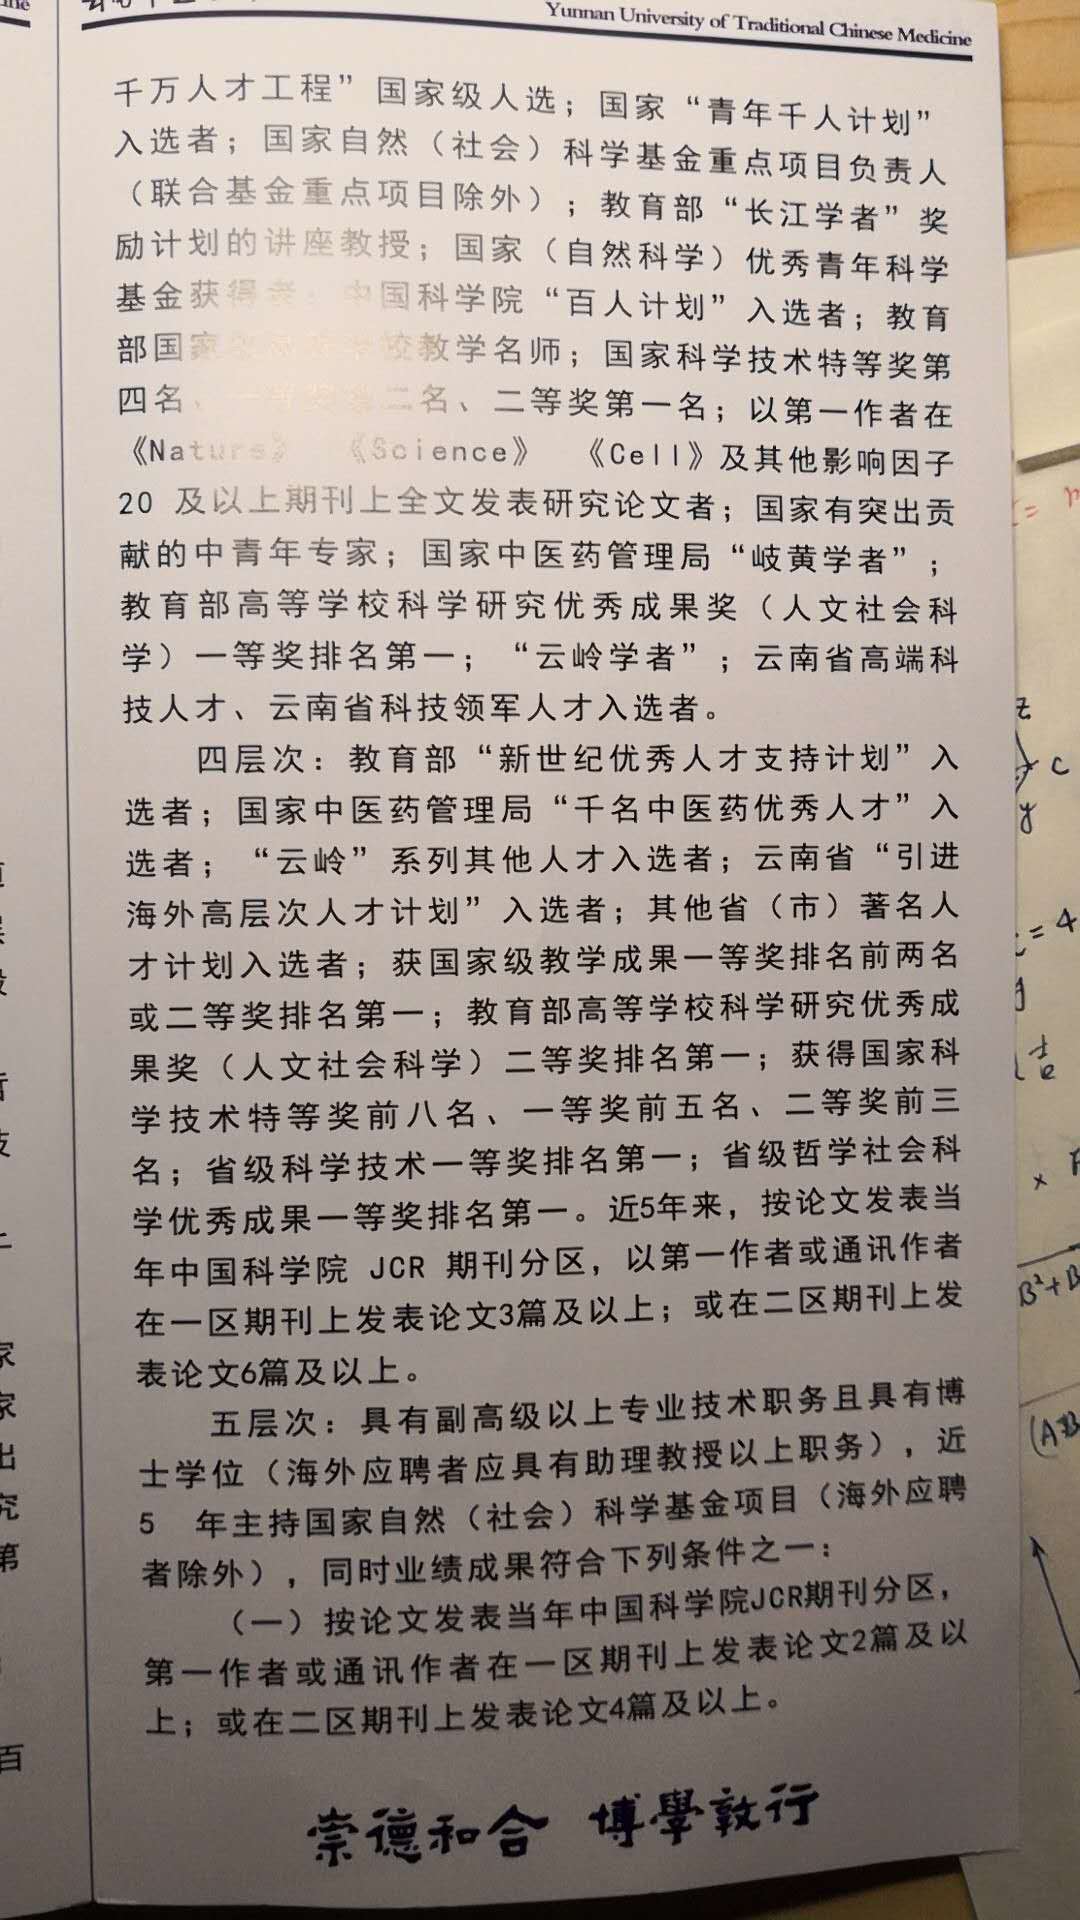 Yunnan University of Traditional Chinese Medicine
千万人才工程”国家级人选；国家“青年千人计划”
入选者；国家自然（社会）科学基金重点项目负责人
（联合基金重点项目除外）；教育部“长江学者”奖
励计划的讲座教授；国家（自然科学）优秀青年科学
基金获得者；中国科学院“百人计划”入选者；教育
部国家 校教学名师；国家科学技术特等奖第
四名、一等奖第二名、二等奖第一名；以第一作者在
《Nature》 《Science》 《Cell》及其他影响因子
20 及以上期刊上全文发表研究论文者；国家有突出贡
献的中青年专家；国家中医药管理局“岐黄学者”；
教育部高等学校科学研究优秀成果奖（人文社会科
学）一等奖排名第一；“云岭学者”；云南省高端科
技人才、云南省科技领军人才入选者。
四层次：教育部“新世纪优秀人才支持计划”入
选者；国家中医药管理局“千名中医药优秀人才”入
选者；“云岭”系列其他人才入选者；云南省“引进
海外高层次人才计划”入选者；其他省（市）著名人
才计划入选者；获国家级教学成果一等奖排名前两名
或二等奖排名第一；教育部高等学校科学研究优秀成
果奖（人文社会科学）二等奖排名第一；获得国家科
学技术特等奖前八名、一等奖前五名、二等奖前三
名；省级科学技术一等奖排名第一；省级哲学社会科
学优秀成果一等奖排名第一。近5年来，按论文发表当
年中国科学院 JCR 期刊分区，以第一作者或通讯作者
在一区期刊上发表论文3篇及以上；或在二区期刊上发
表论文6篇及以上。
五层次：具有副高级以上专业技术职务且具有博
士学位（海外应聘者应具有助理教授以上职务），近
5 年主持国家自然（社会）科学基金项目（海外应聘
者除外），同时业绩成果符合下列条件之一：
（一）按论文发表当年中国科学院JCR期刊分区，
第一作者或通讯作者在一区期刊上发表论文2篇及以
上；或在二区期刊上发表论文4篇及以上。
崇德和合 博學敦行